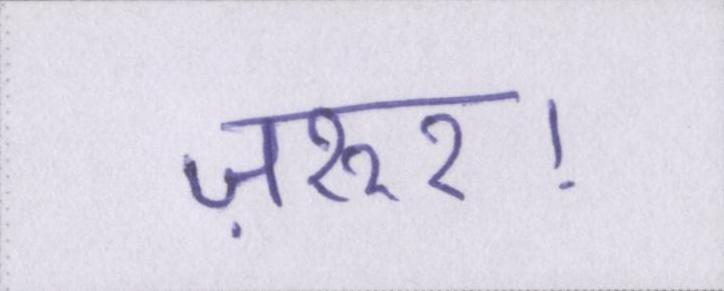 ज़रूर!